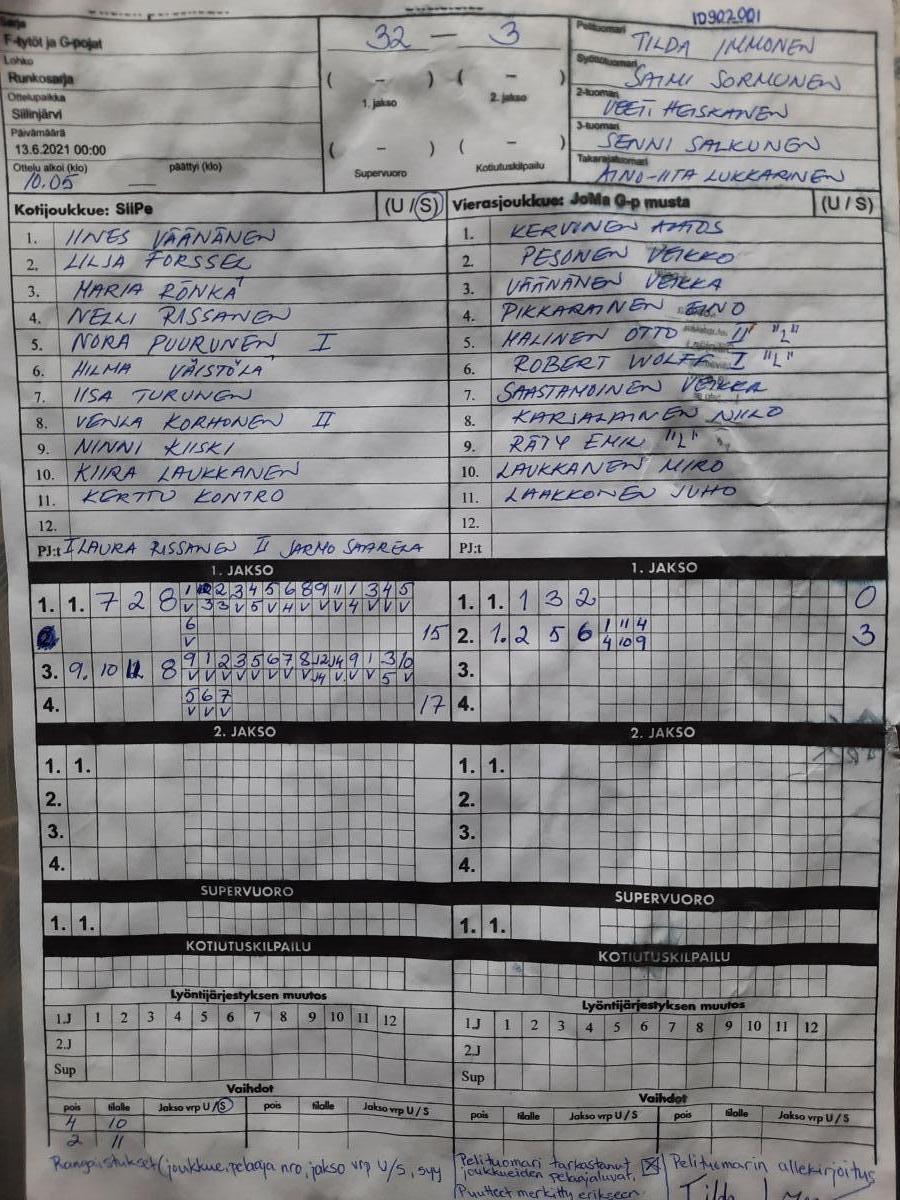 ID902001
Sarja
F-tytöt ja G-pojat
Lohko
Runkosarja
Ottelupaikka
Siilinjärvi
Päivämäärä
13.6.2021 00:00
Ottelu alkoi (klo) päättyi (klo)
10.05 —
32 — 3
( – ) ( – )
1. jakso 2. jakso
( – ) ( – )
Supervuoro Kotiutuskilpailu
Pelituomari
TILDA IMMONEN
Syöttötuomari
SAIMI SORMUNEN
2-tuomari
VEETI HEISKANEN
3-tuomari
SENNI SALKUNEN
Takarajatuomari
AINO-IITA LUKKARINEN
Kotijoukkue: SiiPe (U / S)
1. IINES VÄÄNÄNEN
2. LILJA FORSSEL
3. MARIA RÖNKÄ
4. NELLI RISSANEN
5. NORA PUURUNEN I
6. HILMA VÄISTÖLÄ
7. IISA TURUNEN
8. VENLA KORHONEN II
9. NINNI KIISKI
10. KIIRA LAUKKANEN
11. KERTTU KONTRO
12.
PJ:t I LAURA RISSANEN II JARMO SAARELA
Vierasjoukkue: JoMa G-p musta (U / S)
1. KERVINEN AATOS
2. PESONEN VEIKKO
3. VÄÄNÄNEN VEIKKA
4. PIKKARAINEN EINO
5. MALINEN OTTO II "L"
6. ROBERT WOLFF I "L"
7. SAASTAMOINEN VEIKKA
8. KARJALAINEN NIILO
9. RÄTY EMIL "L"
10. LAUKKANEN MIRO
11. LAAKKONEN JUHO
12.
PJ:t
1. JAKSO
1. 1. 7 2 8
6
V
15
3. 9. 10 11 8
4. 5 6 7
V V V
17
1. JAKSO
1. 1. 1 3 2 0
2. 1. 2 5 6 1 11 4 3
4 10 9
3.
4.
2. JAKSO
1. 1.
2.
3.
4.
2. JAKSO
1. 1.
2.
3.
4.
SUPERVUORO
1. 1.
SUPERVUORO
1. 1.
KOTIUTUSKILPAILU
KOTIUTUSKILPAILU
Lyöntijärjestyksen muutos
1.J 1 2 3 4 5 6 7 8 9 10 11 12
2.J
Sup
Lyöntijärjestyksen muutos
1.J 1 2 3 4 5 6 7 8 9 10 11 12
2.J
Sup
Vaihdot
pois tilalle Jakso vrp U / S pois tilalle Jakso vrp U / S
4 10
2 11
Vaihdot
pois tilalle Jakso vrp U / S pois tilalle Jakso vrp U / S
Rangaistukset (joukkue, pelaaja nro, jakso vrp U/S, syy
Pelituomari tarkastanut
joukkueiden pelaajaluvat.
Puutteet merkitty erikseen.
Pelituomarin allekirjoitus
Tilda